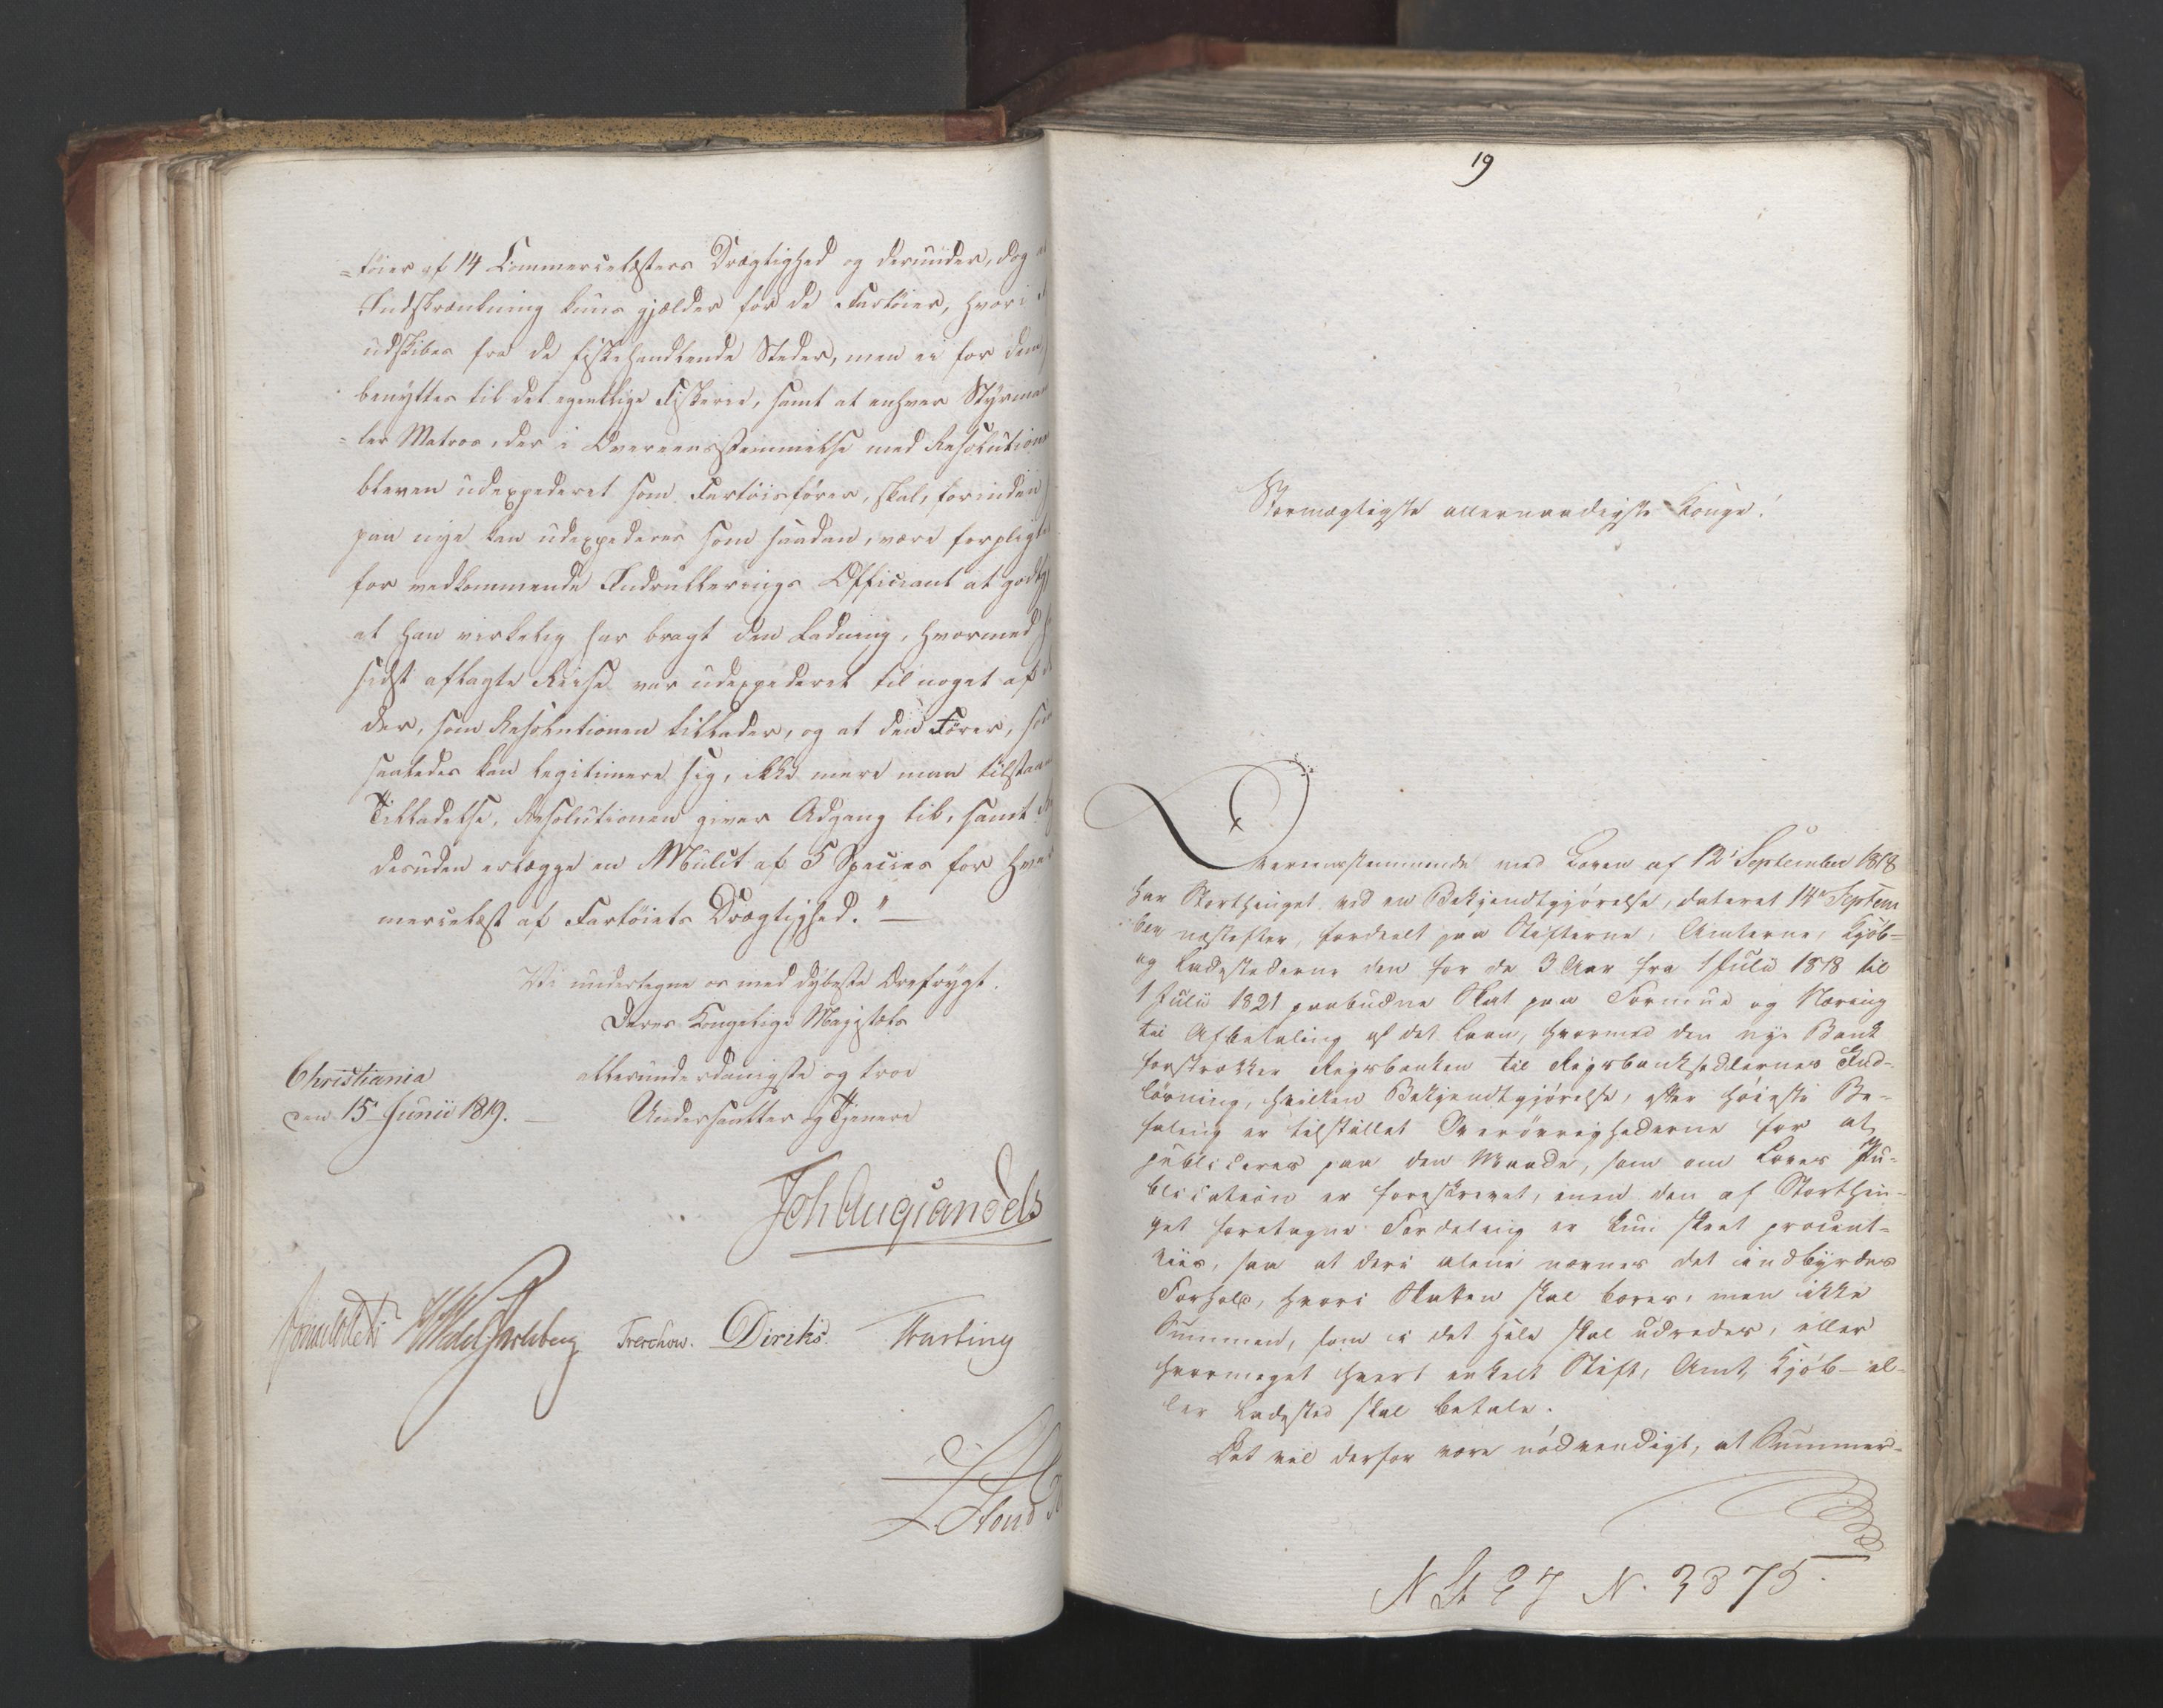 =töier af 14 Commercelæsters Drægtighed og derunder, dog
Indskrænkning kuns gjælder for de Fartöier, hvori
udskibes fra de fiskehandlende Steder, men ei for dem
benyttes til det egentlige Fiskerie, samt at enhver Styrma
=ler Matros, der i Overeensstemmelse med Resolution
bleven udexpederet som Fartöisfører, skal, forinden
paa nye kan udexpederes som saadan, være forpligt
for vedkommende Indrullerings Officiant at godtgj
at han virkelig har bragt den Ladning, hvormed
sidst aflagte Reise var udexpederet til noget af
der, som Resolutionen tillader, og at den Fører, som
saaledes kan legitimere sig, ikke mere maa tilstaae
Tilladelse, Resolutionen giver Adgang til, samt
desuden erlægge en Mulct af 5 Species for hver
mercelæst af Fartöiets Drægtighed." —
Vi undertegne os med dybeste Ærefrygt.
Deres Kongelige Majestæts
Christiania allerunderdanigste og troe
den 15 Junii 1819. — Undersaatter og Tjenere
Joh Aug Sandels
Sommerfeldt Wedel Jarlsberg Treschow. Diriks. Fasting
19
Stormægtigste allernaadigste Konge!
Overeensstemmende med Loven af 12 September 1818
har Storthinget ved en Bekjendtgjørelse, dateret 14 Septem
ber næstefter, fordeelt paa Stifterne, Amterne, Kjöb-
og Ladestederne den for de 3 Aar fra 1 Julii 1818 til
1 Julii 1821 paabudne Skat paa Formue og Næring
til Afbetaling af det Laan, hvormed den nye Bank
forstrækker Rigsbanken til Rigsbanksedlernes Ind-
lösning, hvilken Bekjendtgjørelse, efter höieste Be-
faling er tilstillet Överövrighederne for at
publiceres paa den Maade, som om Loves Pu-
blication er foreskrevet, men den af Storthin-
get foretagne Fordeling er kun skeet procent-
viis, saa at deri alene nævnes det indbyrdes
Forhold, hvori Skatten skal bæres, men ikke
Summen, som i det Hele skal udredes, eller
hvormeget hvert enkelt Stift, Amt, Kjöb- el-
ler Ladested skal betale.
Det vil derfor være nödvendigt, at Summer-
N 3375.